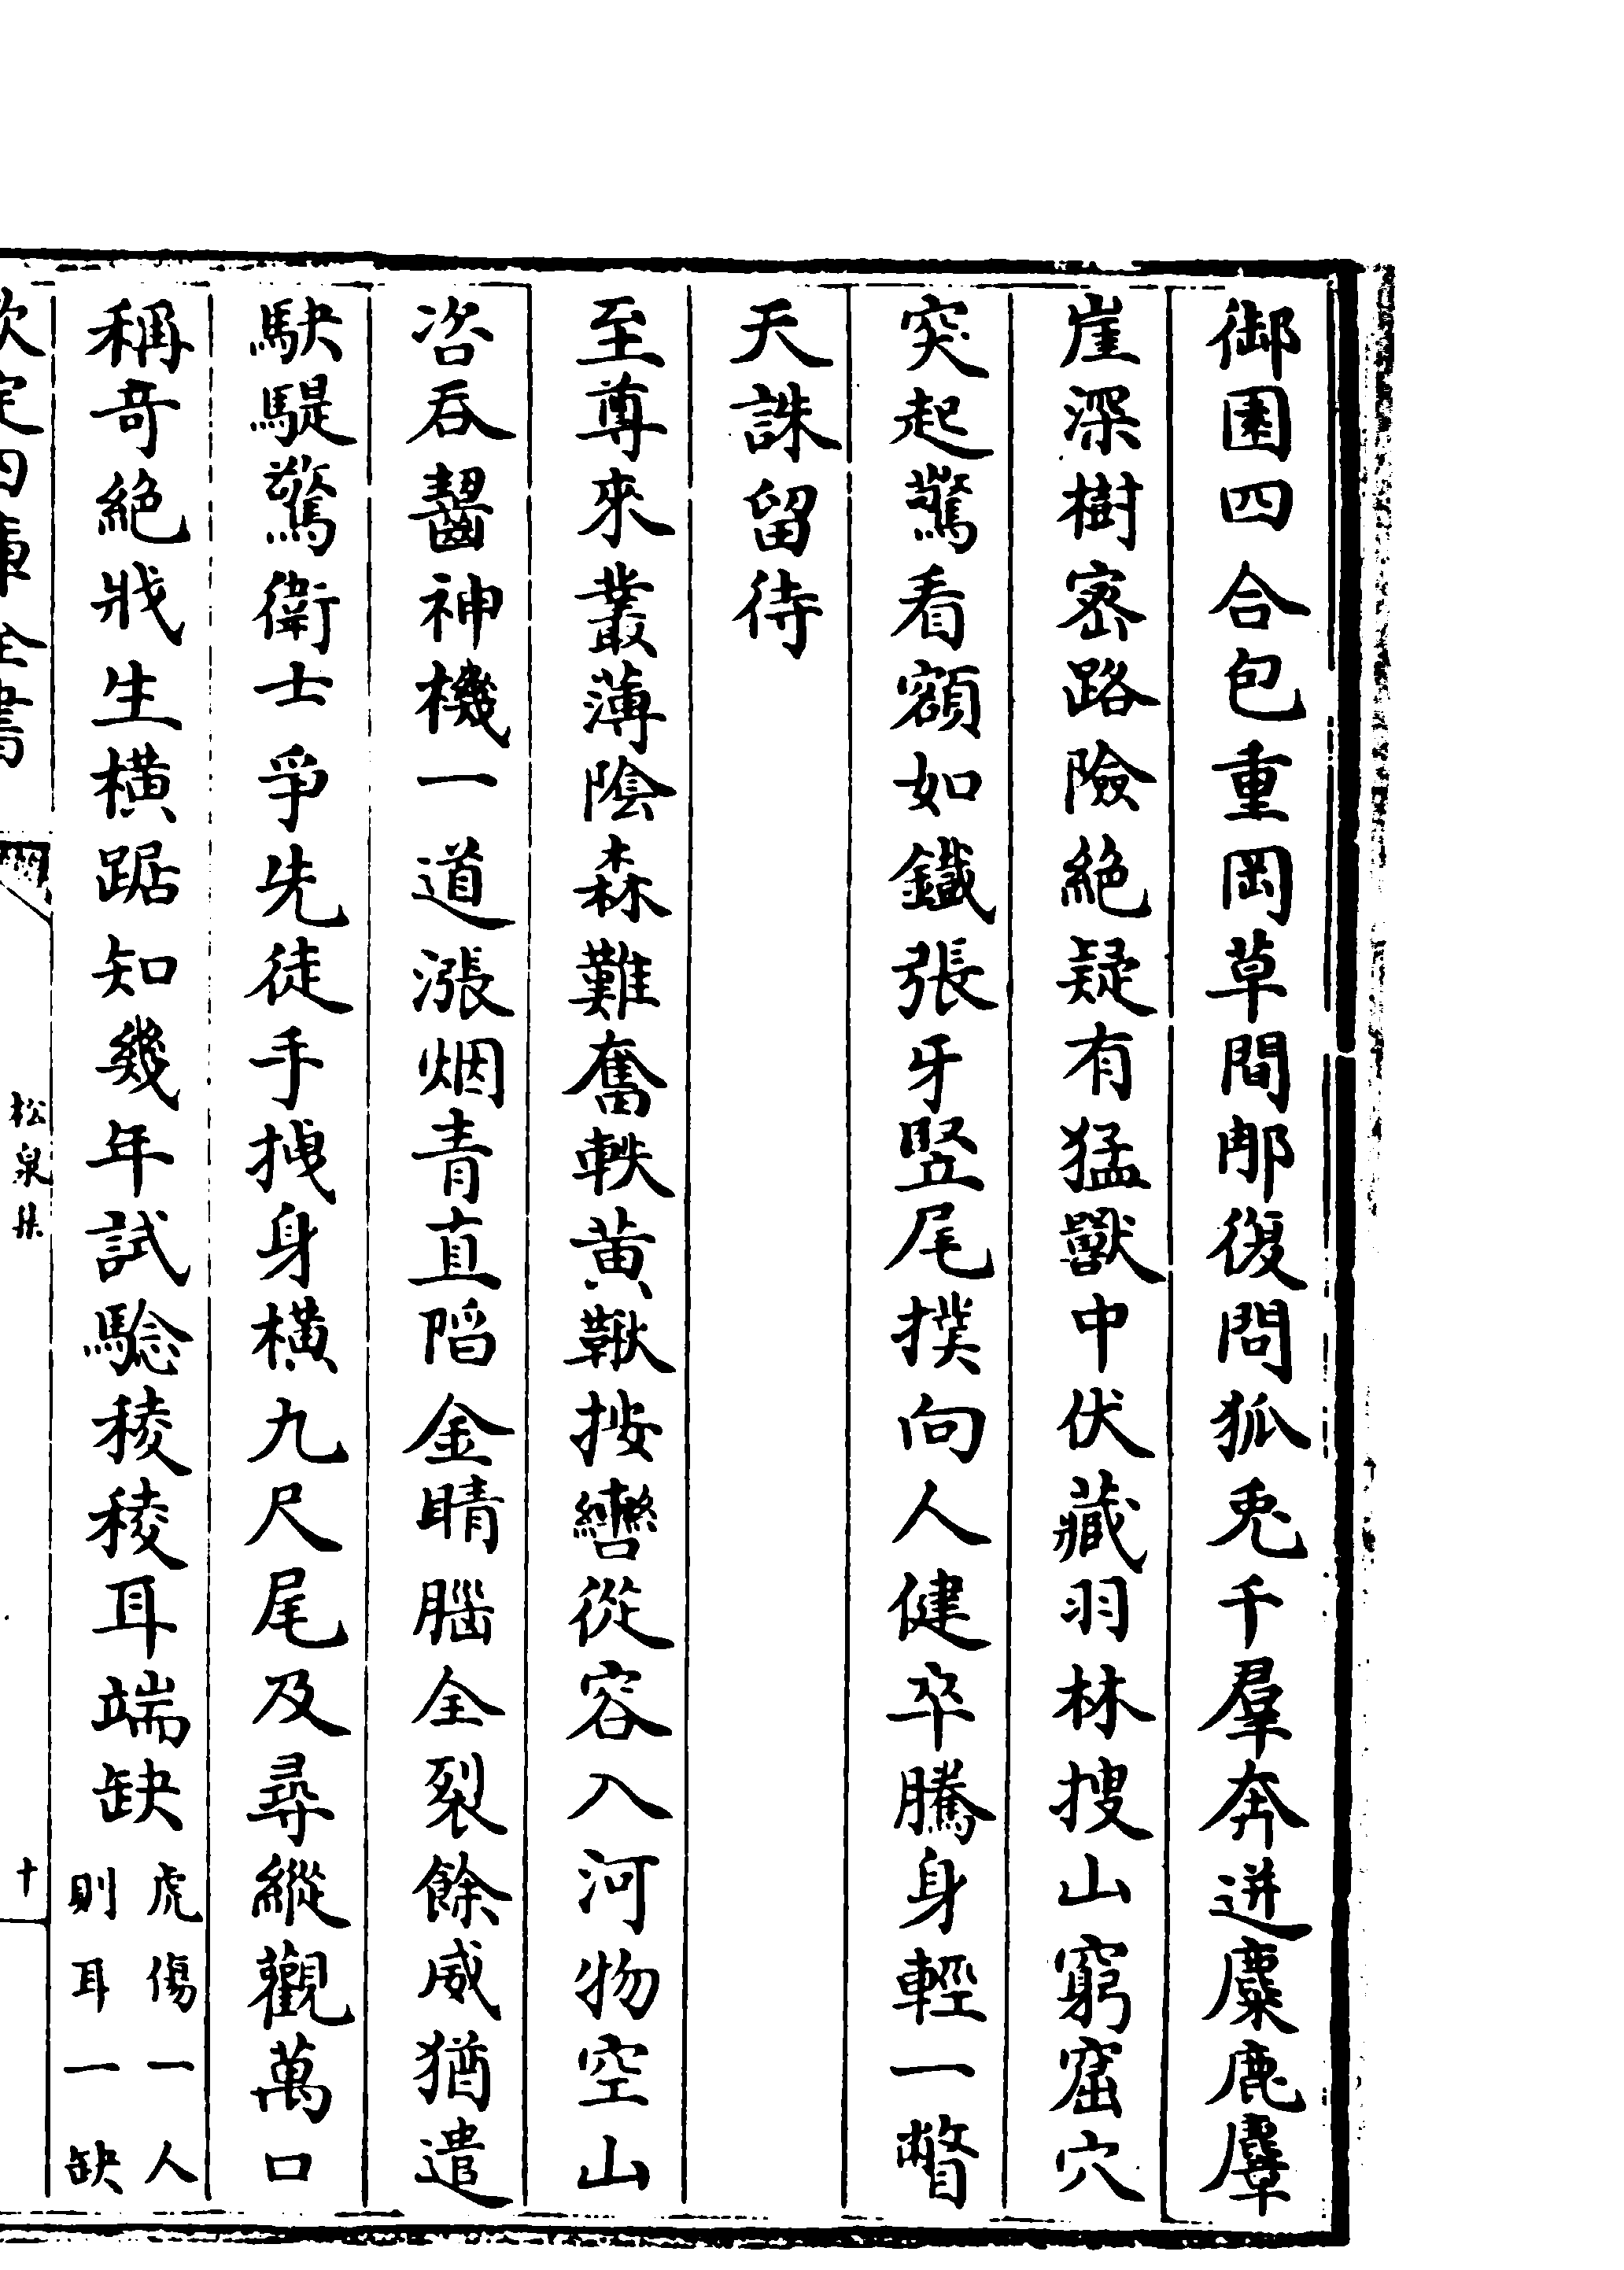 御園四合包重岡草間那復問狐兎千羣奔迸麋鹿麏
崖深樹宻路險絶疑有猛獸中伏藏羽林搜山窮窟穴
突起驚看額如鐵張牙竪尾撲向人健卒騰身輕一瞥
天誅留待
至尊來叢薄隂森難奮軼黄鞦按轡從容入河物空山
咨吞齧神機一道漲烟青直䧟金睛腦全裂餘威猶遣
駃騠驚衛士爭先徒手拽身横九尺尾及尋縱觀萬口
稱奇絶戕生横踞知幾年試驗稜稜耳端缺虎傷一人
則耳一缺
欽定四庫全書
松泉集
十